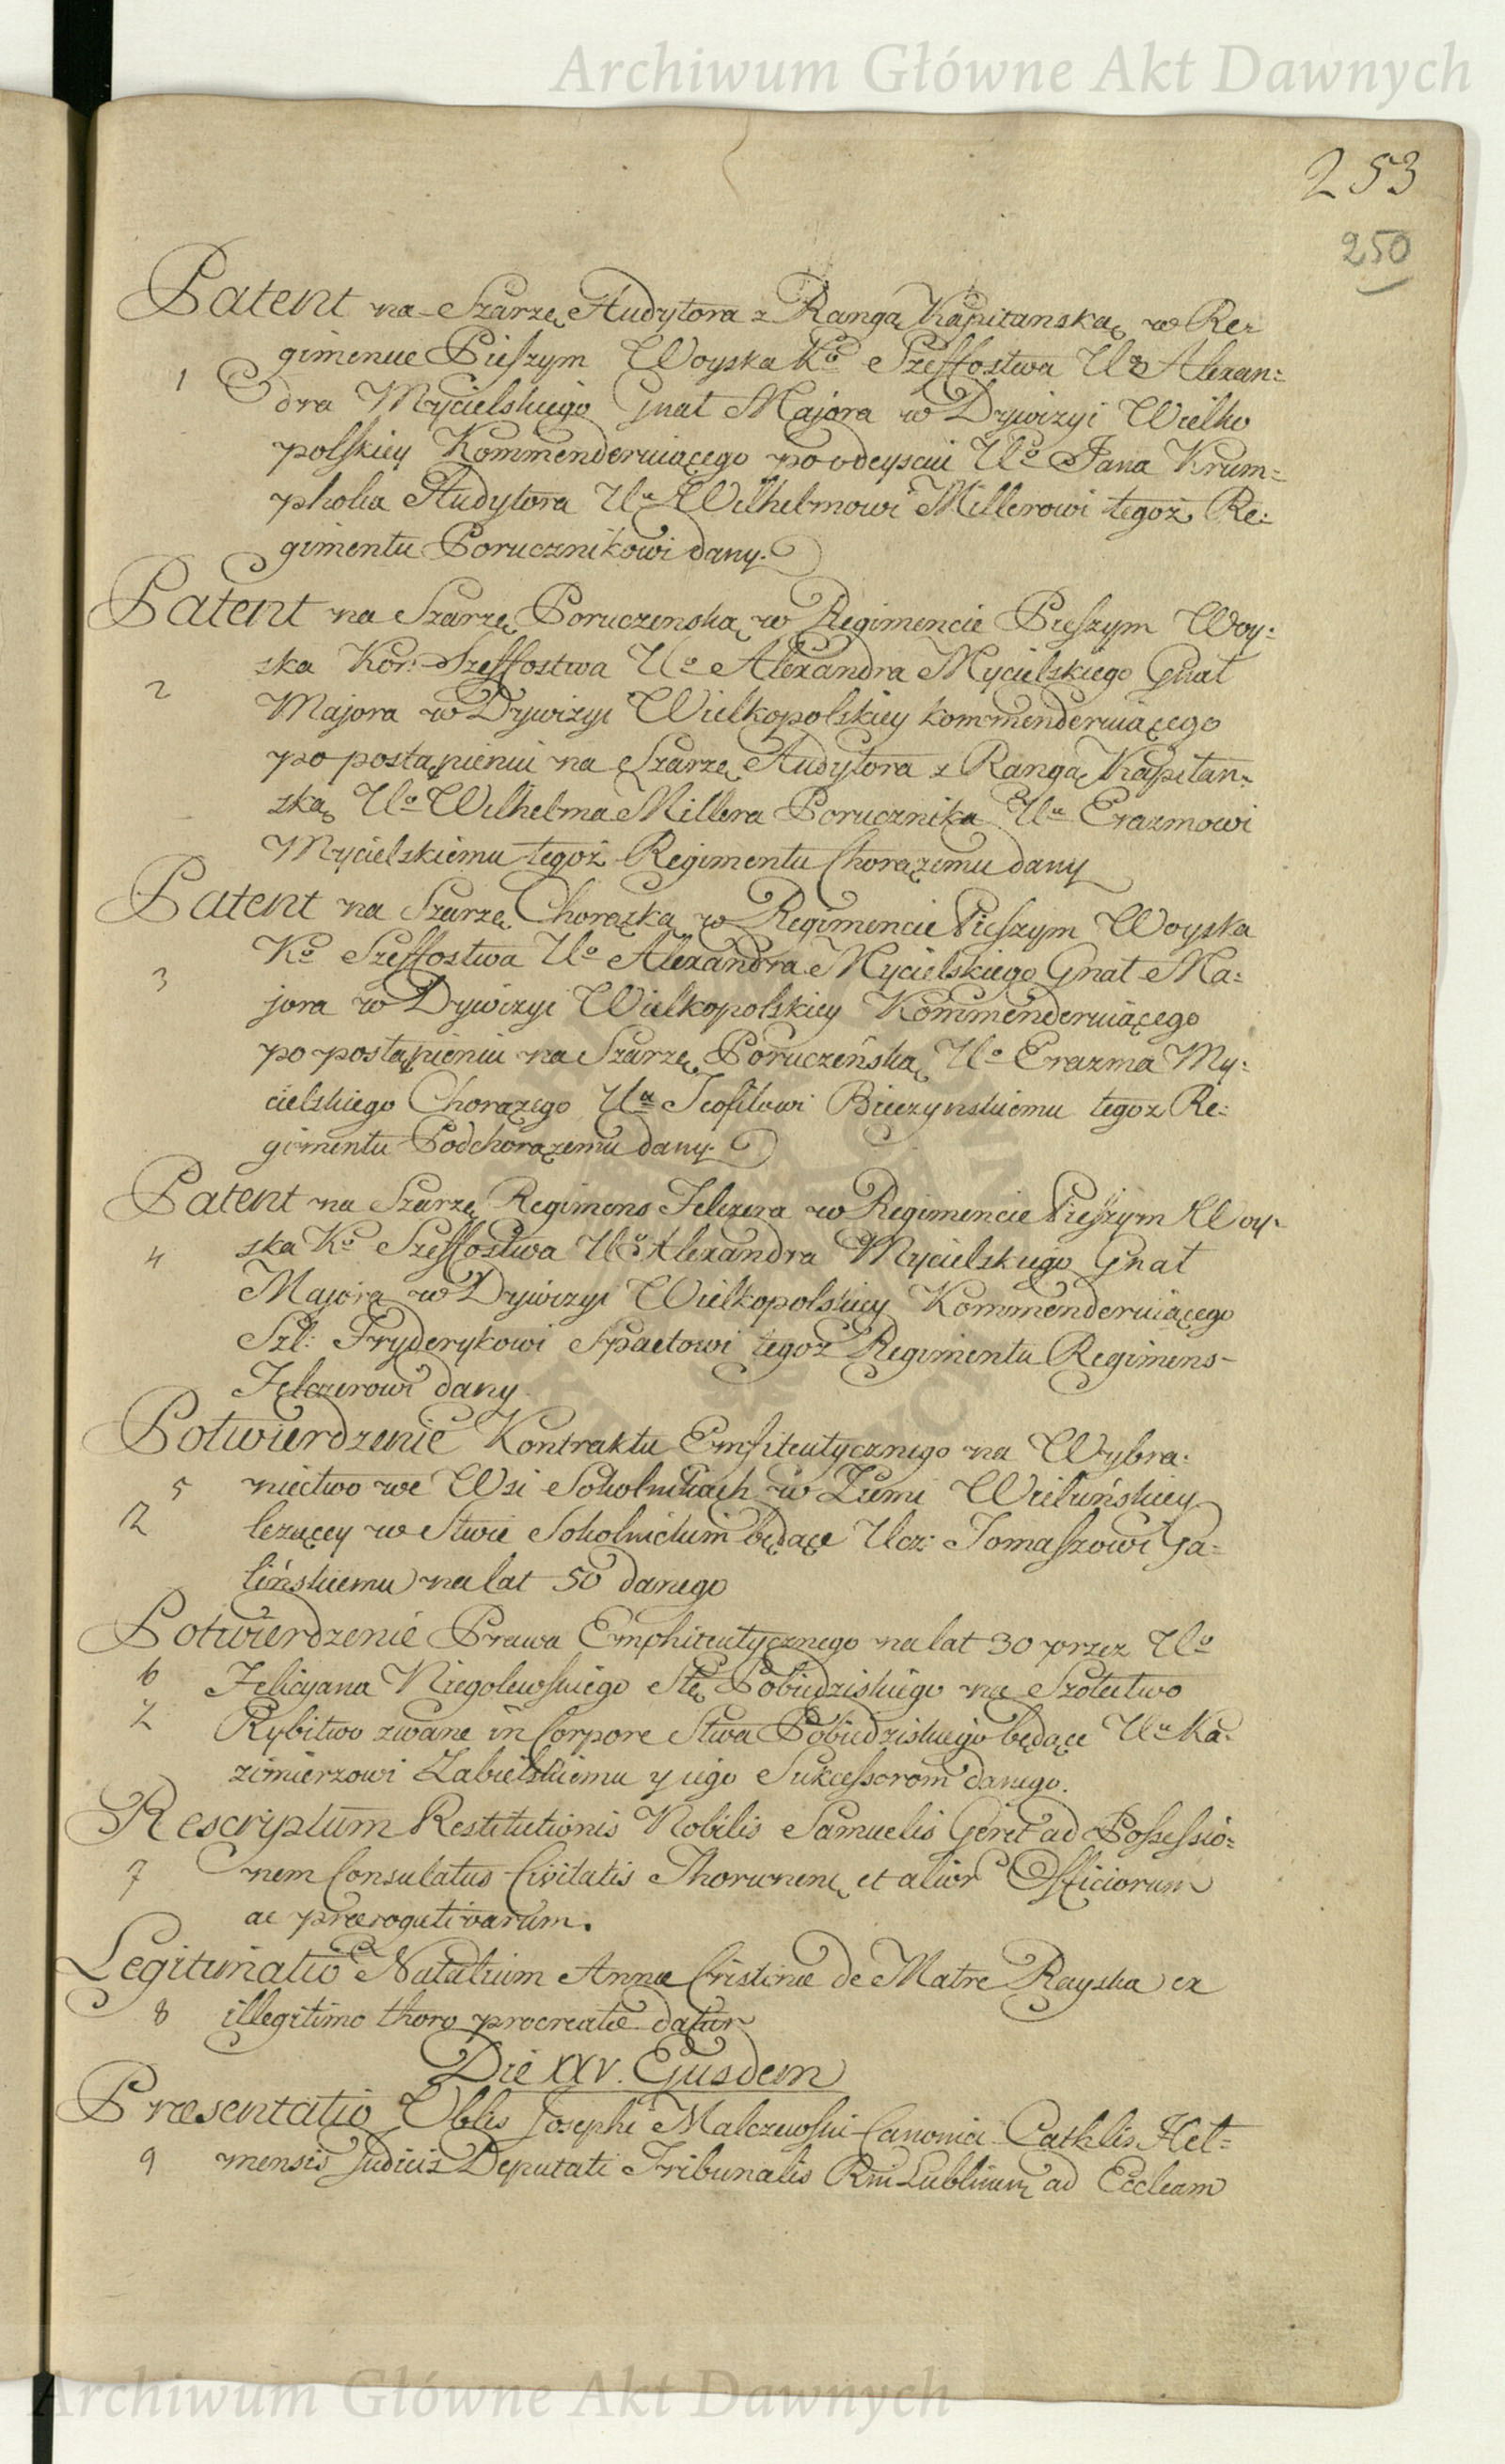 Archiwum Główne Akt Dawnych
253
250
Patent na Szarzę Audytora z Rangą Kapitanską w Re-
gimencie Pieszym Woyska Ko Szeffostwa Uo Alexan:
1 dra Mycielskiego Gnał Majora w Dywizyi Wielko
polskiey Kommenderuiącego po odeysciu Uo Jana Krum=
pholca Audytora Uu Wilhelmowi Millerowi tegoż Re:
gimentu Porucznikowi dany.
Patent na Szarzę Poruczenską w Regimencie Pieszym Woy:
ska Kor: Szeffostwa Uo Alexandra Mycielskiego Gnał
2 Majora w Dywizyi Wielkopolskiey kommenderuiącego
po postąpieniu na Szarzę Audytora z Rangą Kapitan:
ską Uo Wilhelma Millera Porucznika Uu Erazmowi
Mycielskiemu tegoż Regimentu Chorązemu dany
Patent na Szarzę Chorązką w Regimencie Pieszym Woyska
Ko Szeffostwa Uo Alexandra Mycielskiego Gnał Ma:
3 jora w Dywizyi Wielkopolskiey Kommenderuiącego
po postąpieniu na Szarzę Poruczeńską Uo Erazma My:
cielskiego Chorązego Uu Teofilowi Bieczynskiemu tegoz Re:
gimentu Podchorązemu dany.
Patent na Szarzę Regimens Felczera w Regimencie Pieszym Woy-
4 ska Ko Szeffostwa Uo Alexandra Mycielskiego Gnał
Majora w Dywizyi Wielkopolskiey Kommenderuiącego
Szl: Fryderykowi Spaetowi tegoż Regimentu Regimens-
Felczerowi dany.
Potwierdzenie Kontraktu Emfiteutycznego na Wybra:
5 niectwo we Wsi Sokolnikach w Ziemi Wieluńskiey
R leżącey w Stwie Sokolnickim będące Ucz: Tomaszowi Ga=
lińskiemu na lat 50 danego
Potwierdzenie Prawa Emphiteutycznego na lat 30 przez Uo
6 Felicyana Niegolewskiego Stę Pobiedziskiego na Szołectwo
Z Rybitwo zwane in Corpore Stwa Pobiedziskiego będące Uu Ka:
zimierzowi Zabielskiemu y iego Sukcessorom danego.
Rescriptum Restitutionis Nobilis Samuelis Geret ad Possessio=
7 nem Consulatus Civitatis Thorunen et alior Officiorum
ac praerogativarum.
Legitimatio Natalium Annae Cristinae de Matre Rayska ex
8 illegitimo thoro procreatae datur
Die XXV. Ejusdem
Praesentatio Oblis Josephi Malczewski Canonici Cathlis Hel=
9 mensis Judicis Deputati Tribunalis Rni Lublinen ad Eccleam
Archiwum Główne Akt Dawnych